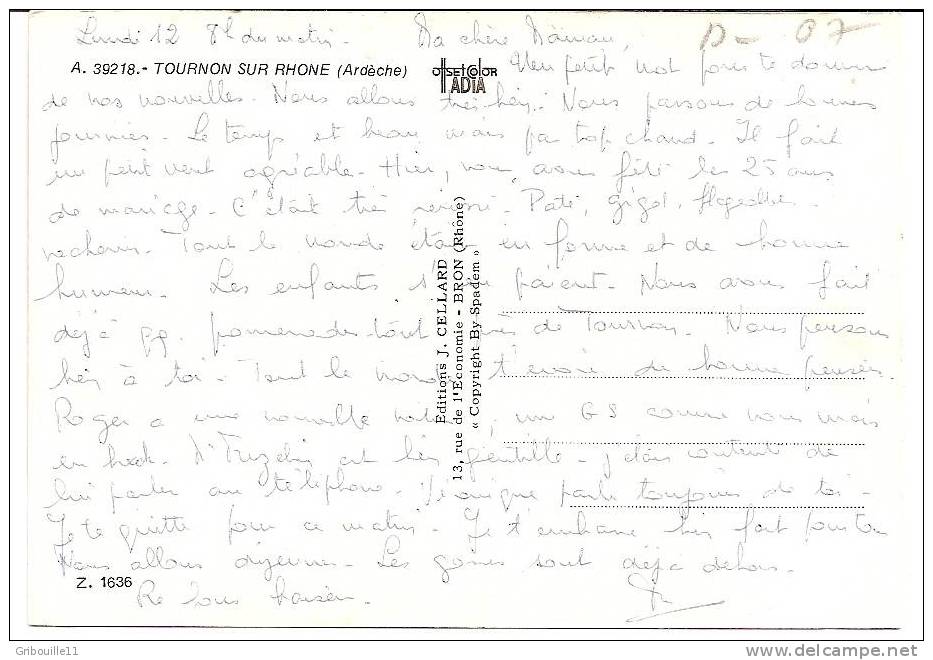 Lundi 12 8h du matin. Ma chère Maman, D- 07
A. 39218.- TOURNON SUR RHONE (Ardèche) OFFSET COLOR ADIA Un petit mot pour te donner
de nos nouvelles. Nous allons très bien. Nous passons de bonnes
journées. Le temps est beau mais pas trop chaud. Il fait
un petit vent agréable. Hier, nous avons fêté les 25 ans
de mariage. C'était très réussi. Paté, gigot, flageolets.
vacherin. Tout le monde était en forme et de bonne
humeur. Les enfants Nous avons fait
déjà qq. promenades tout près de Tournon. Nous pensons
bien à toi. Tout le monde t'envoie de bonnes pensées.
Roger a une nouvelle voiture, un GS comme nous mais
en break. est très gentille. J'étais contente de
lui parler au téléphone. parle toujours de toi.
Je te quitte pour ce matin. Je t'embrasse bien fort pour tous
Nous allons déjeuner. Les gosses sont déjà dehors.
Z. 1636
Re bons baisers.
Editions J. CELLARD
13, rue de l'Economie - BRON (Rhône)
« Copyright By Spadem »
Gribouille11
www.delcampe.net